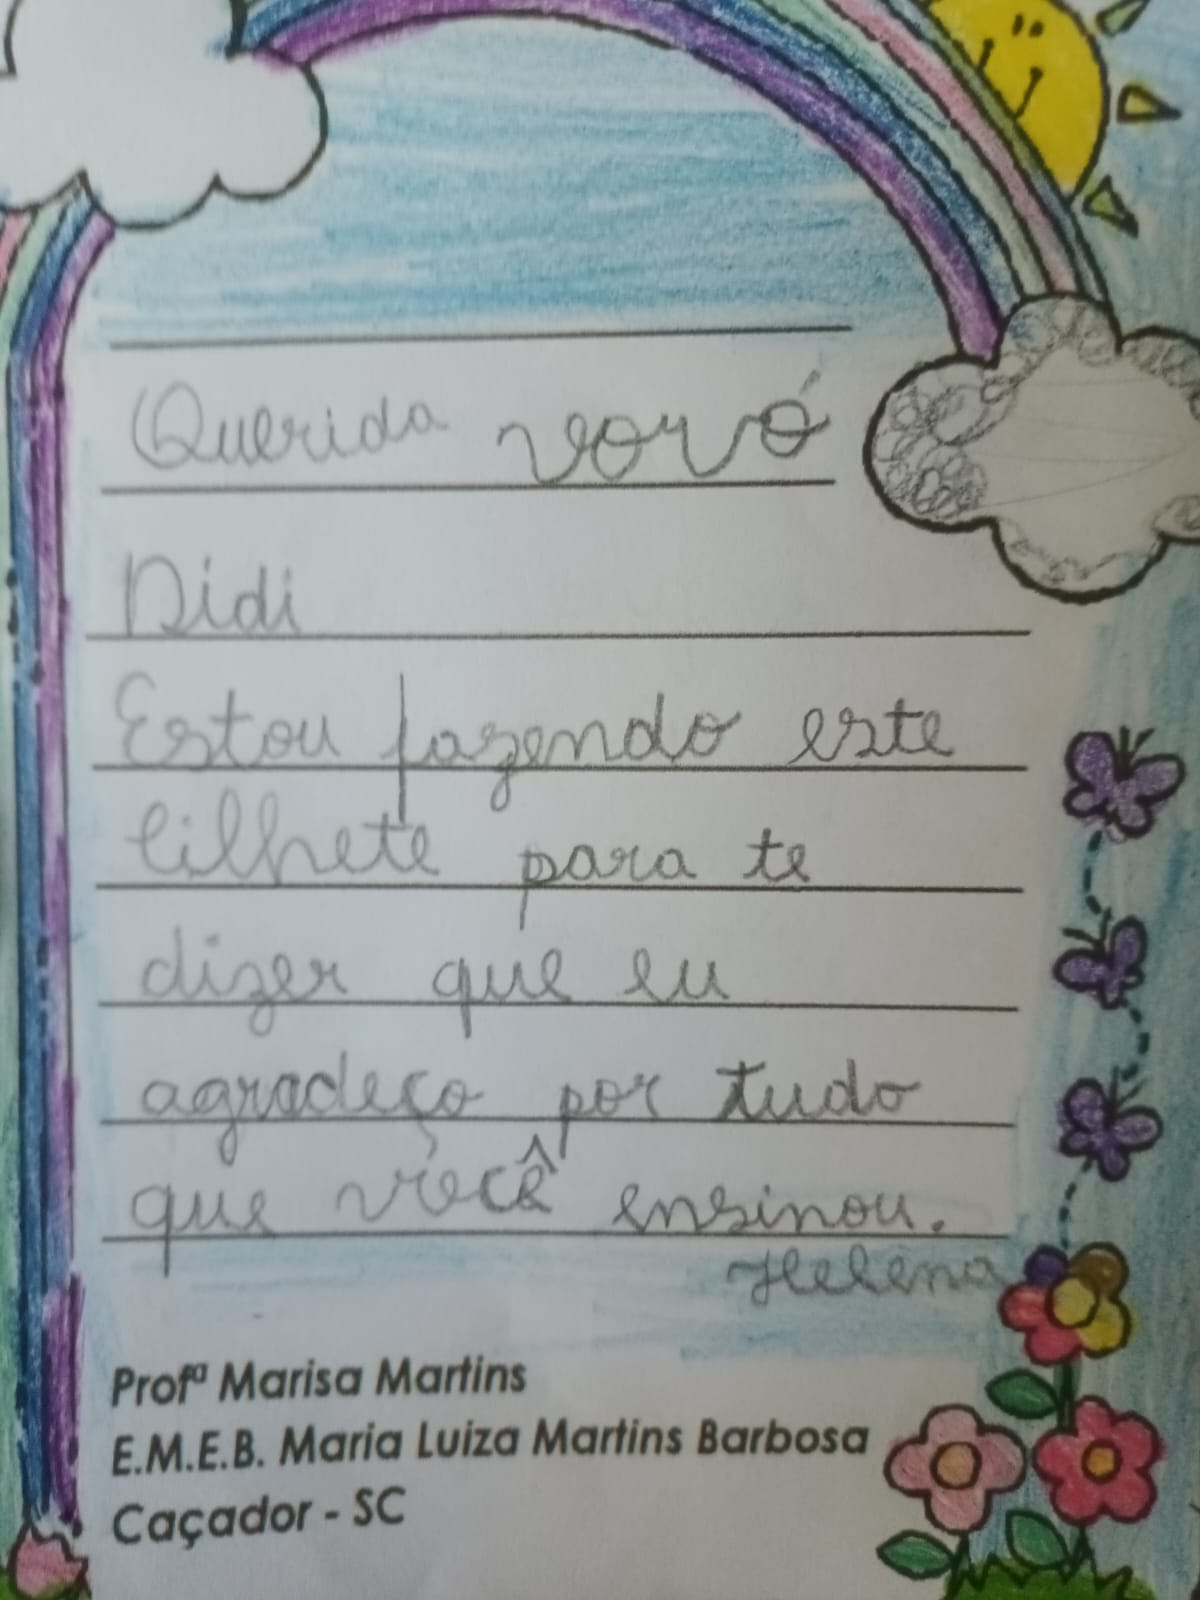 Querida vovó
Didi
Estou fazendo este
bilhete para te
dizer que eu
agradeço por tudo
que você ensinou.
Helena
Profª Marisa Martins
E.M.E.B. Maria Luiza Martins Barbosa
Caçador - SC